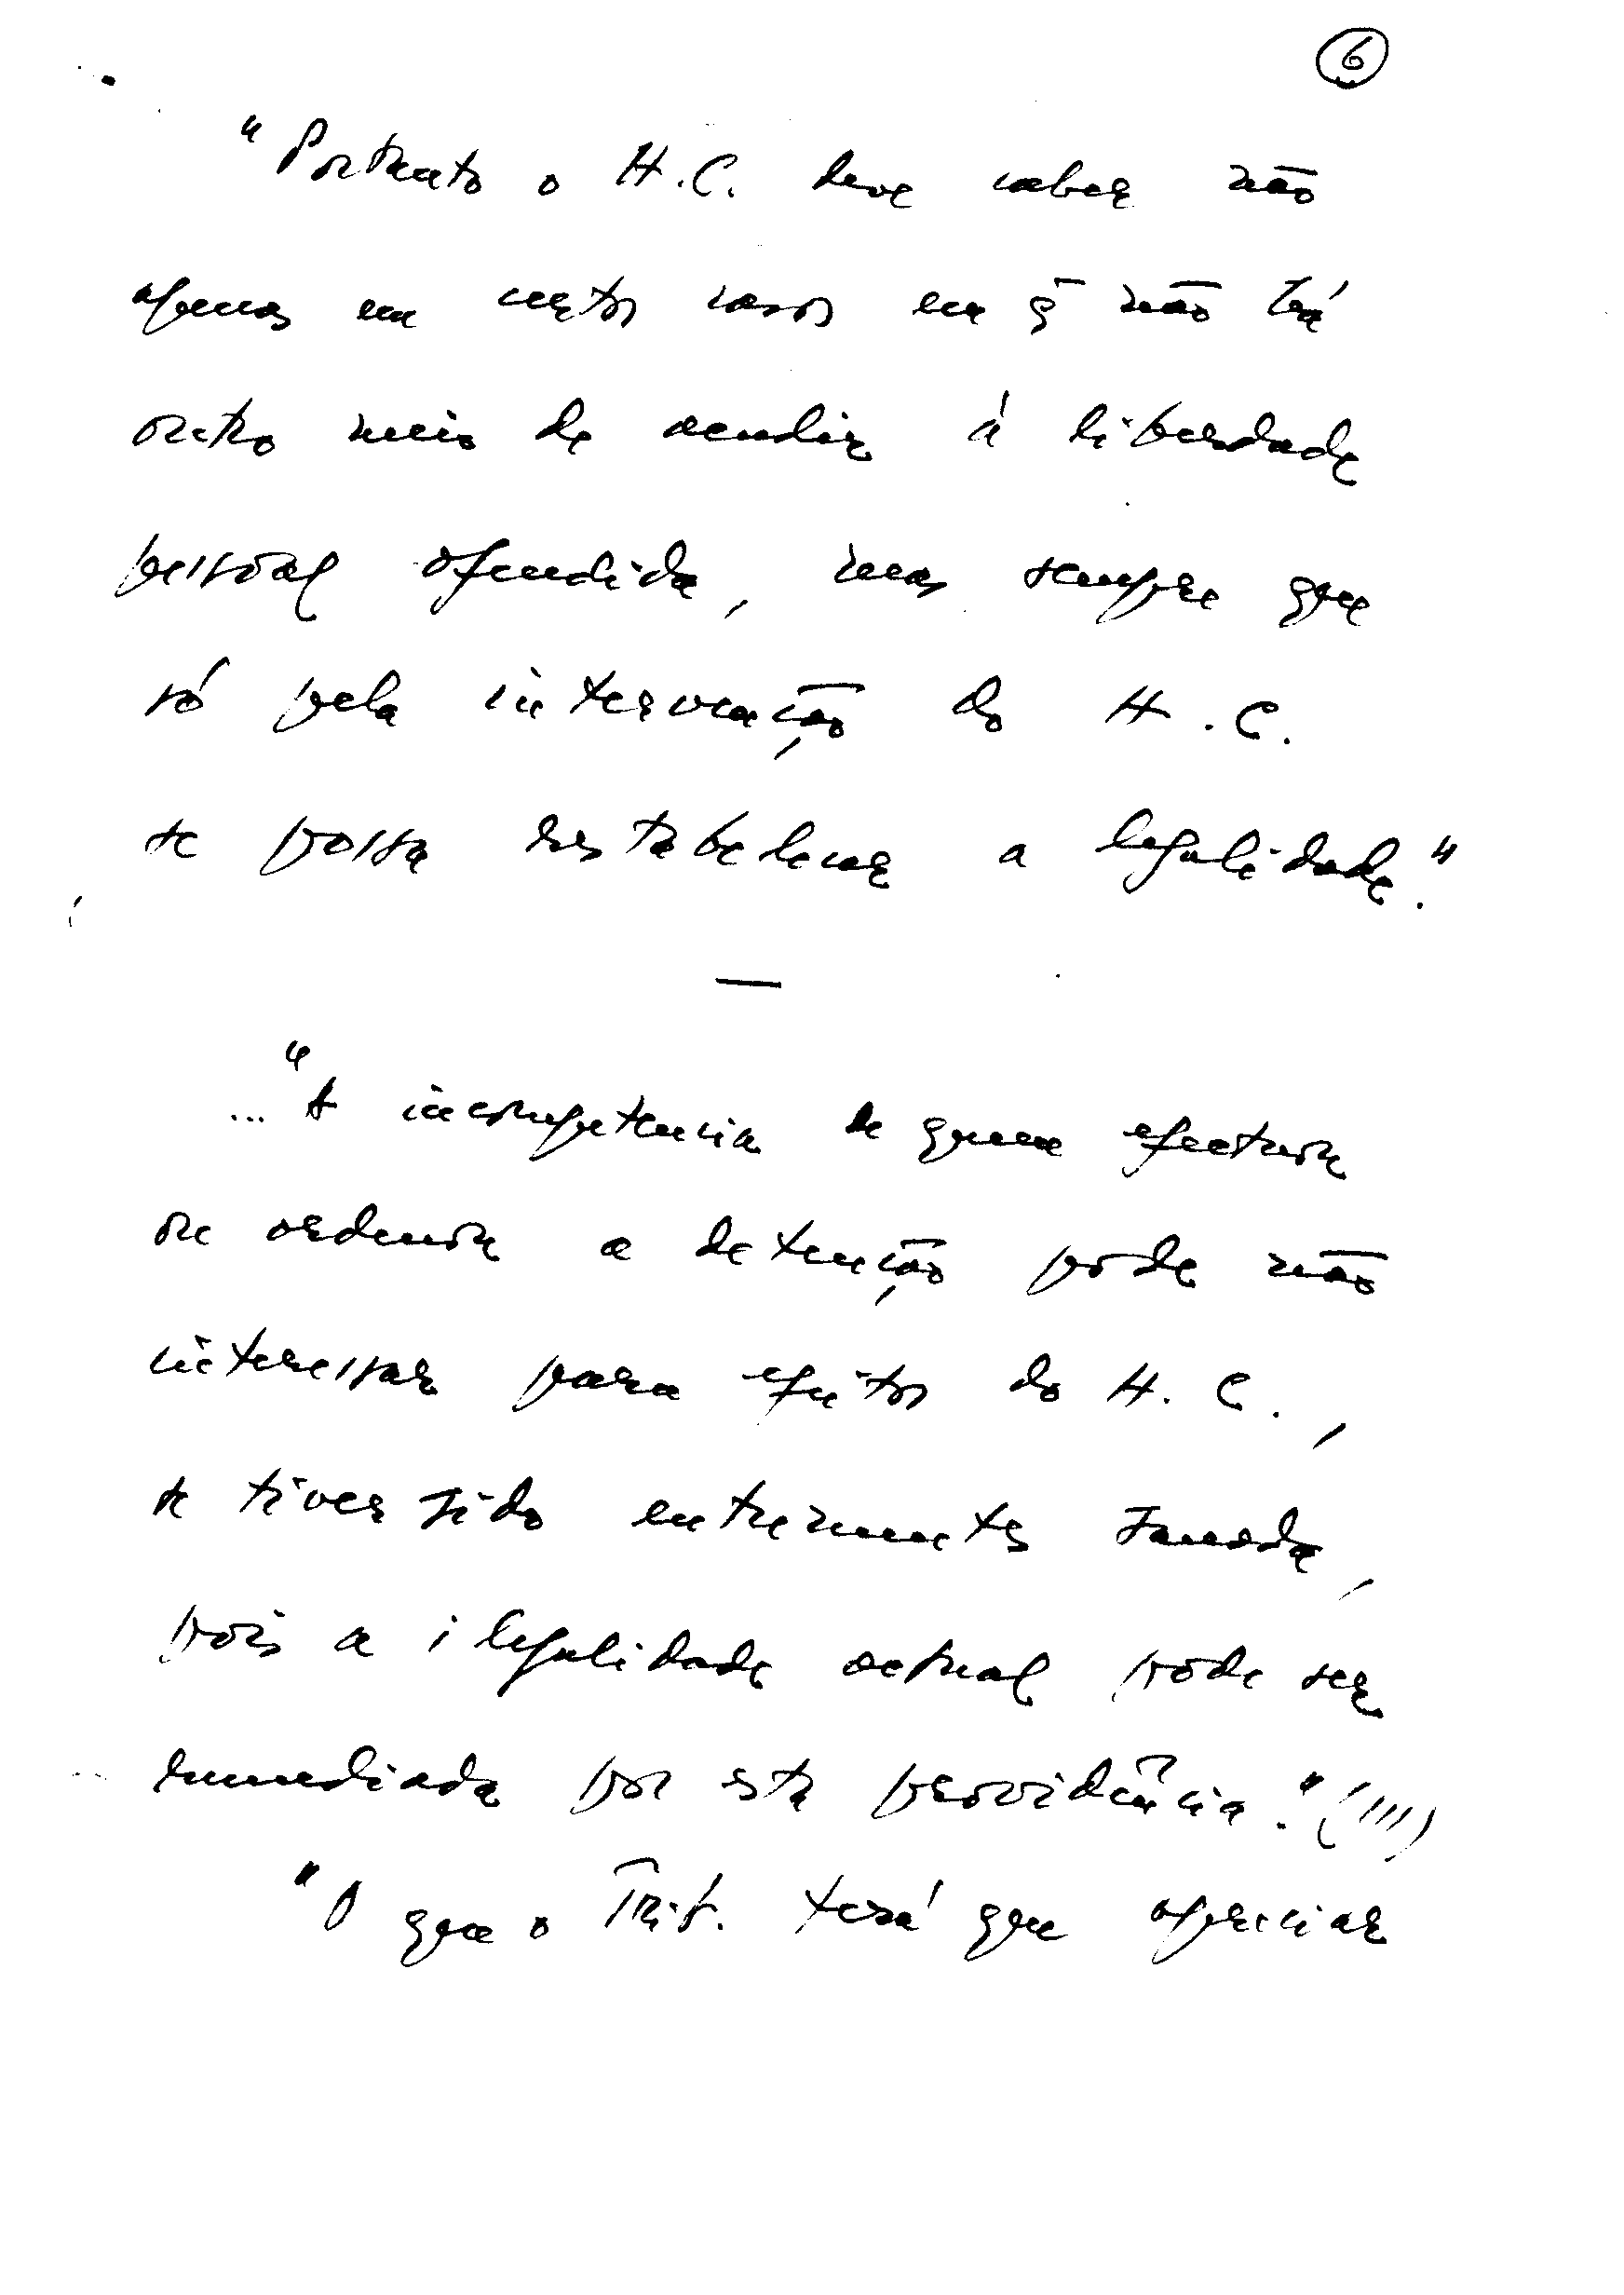 6
"Portanto o H.C. deve caber não
apenas em certos casos em q̃ não há
outro meio de acudir á liberdade
pessoal ofendida, mas sempre que
só pela intervenção do H.C.
se possa restabelecer a legalidade."
—
..."A incompetencia de quem efectuou
ou ordenou a detenção pode não
interessar para efeitos do H.C.,
se tiver sido entrementes sanada,
pois a ilegalidade actual pode ser
remediada por esta providência." (III)
"O que o Trib. terá que apreciar